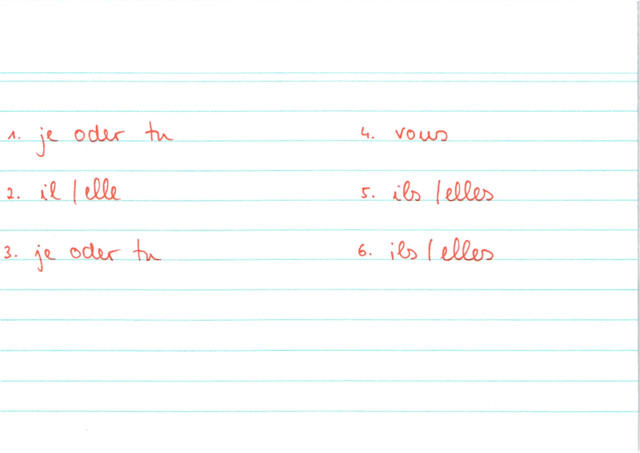 1. je oder tu
2. il / elle
3. je oder tu
4. vous
5. ils / elles
6. ils / elles